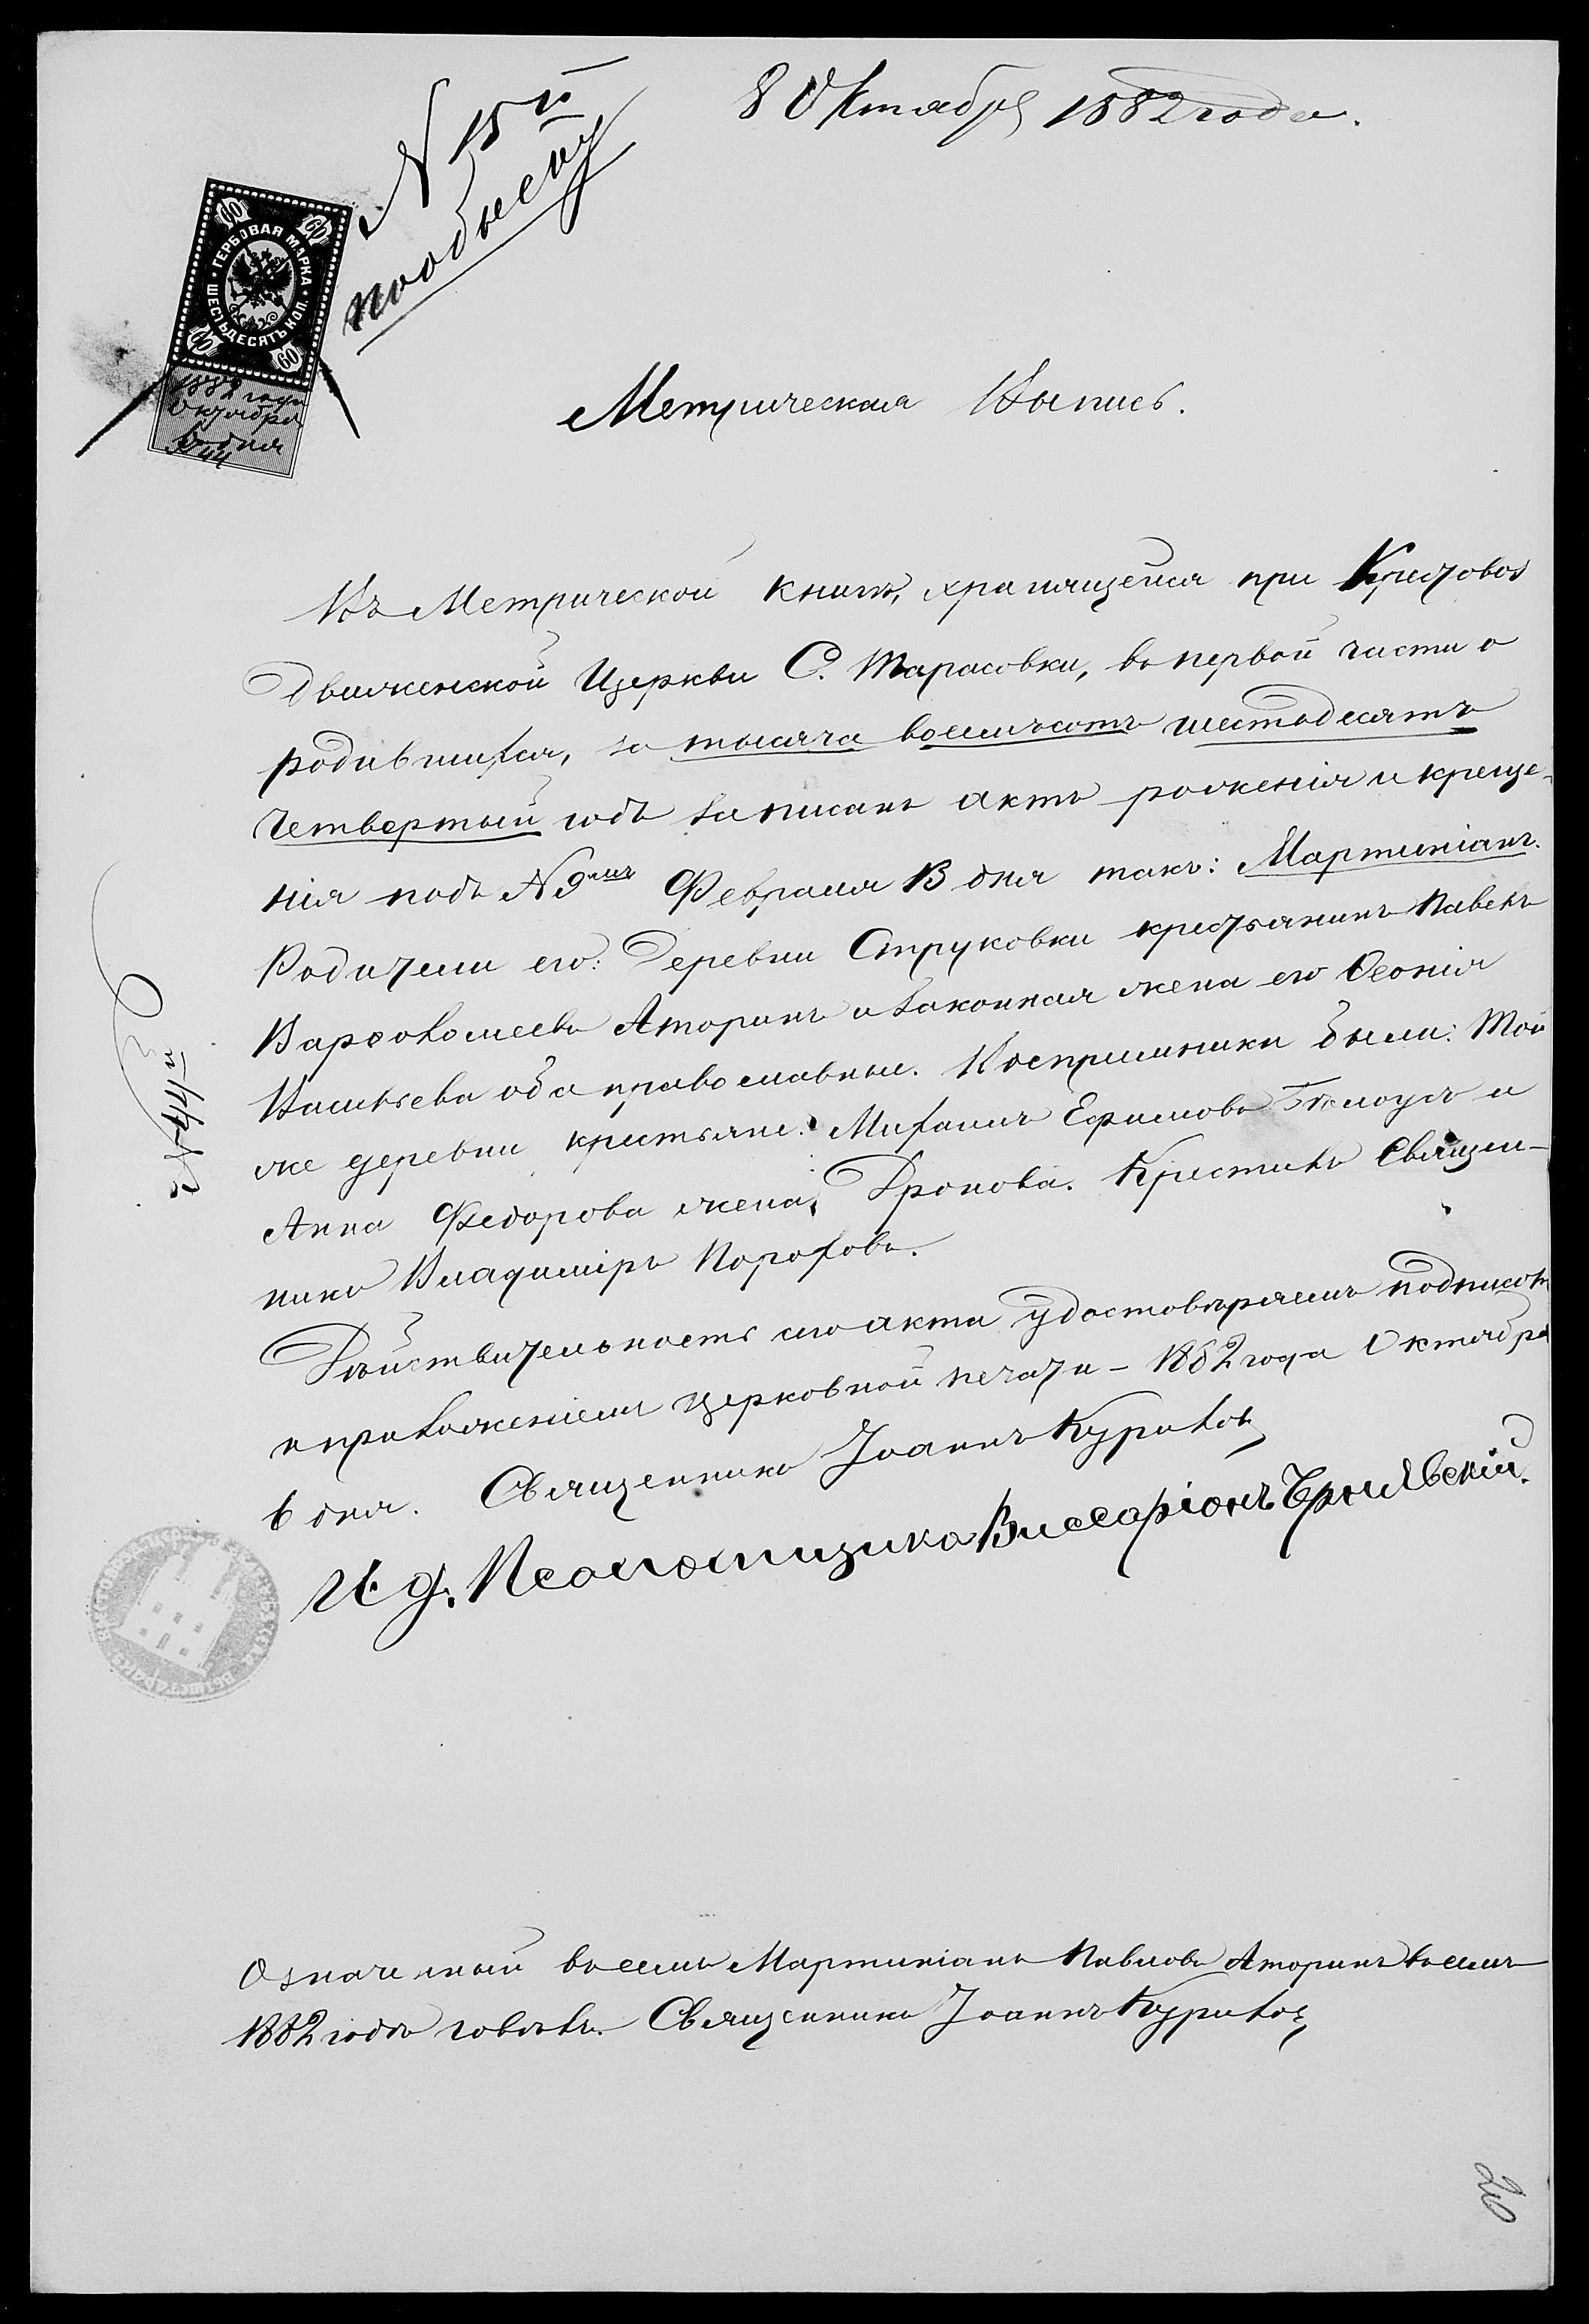 8 Октября 1882 года.
N 15й
пообыску
ГЕРБОВАЯ МАРКА
ШЕСТЬДЕСЯТЪ КОП.
60 60
60 60
1882 года
Октября
6 дня
N 44
Метрическая Выпись.
Въ Метрической книгѣ, хранящейся при Крестовоз
движенской Церкви С. Тарасовки, въ первой части о
родившихся, за тысяча восемьсотъ шестьдесятъ
четвертый годъ записанъ актъ рожденія и креще-
нія подъ N 9мъ Февраля 13 дня такъ: Мартиніанъ.
Родители его: Деревни Струковки крестьянинъ Павелъ
Варѳоломеевъ Аторинъ и законная жена его Ѳеонія
Васильева оба православные. Воспріемники были: Той
же деревни крестьяне: Михаилъ Ефимовъ и
Анна Федорова жена, Дронова. Крестилъ Священ-
никъ Владиміръ Пороховъ.
Дѣйствительность сего акта удостовѣряемъ подписомъ
и приложеніемъ церковной печати – 1882 года Октября
6 дня. Священникъ Іоаннъ Куриловъ
И. д. Псаломщика Виссаріонъ Чернявскій.
N 44й
Означенный въ семъ Мартиніанъ Павловъ Аторинъ въ семъ
1882 годѣ говѣлъ. Священникъ Іоаннъ Куриловъ
20